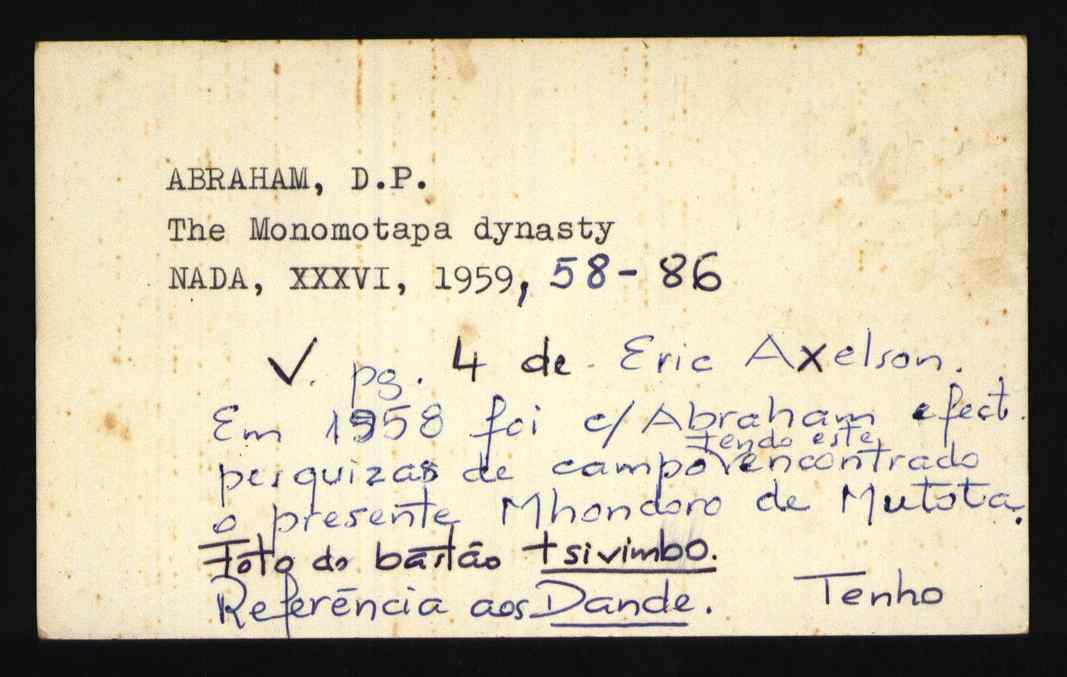 ABRAHAM, D.P.
The Monomotapa dynasty
NADA, XXXVI, 1959, 58-86
V. pg. 4 de Eric Axelson.
Em 1958 foi c/ Abraham efect.
tendo este
pesquizas de campo V encontrado
o presente Mhondoro de Mutota.
Foto do bastão tsivimbo.
Referência aos Dande. Tenho